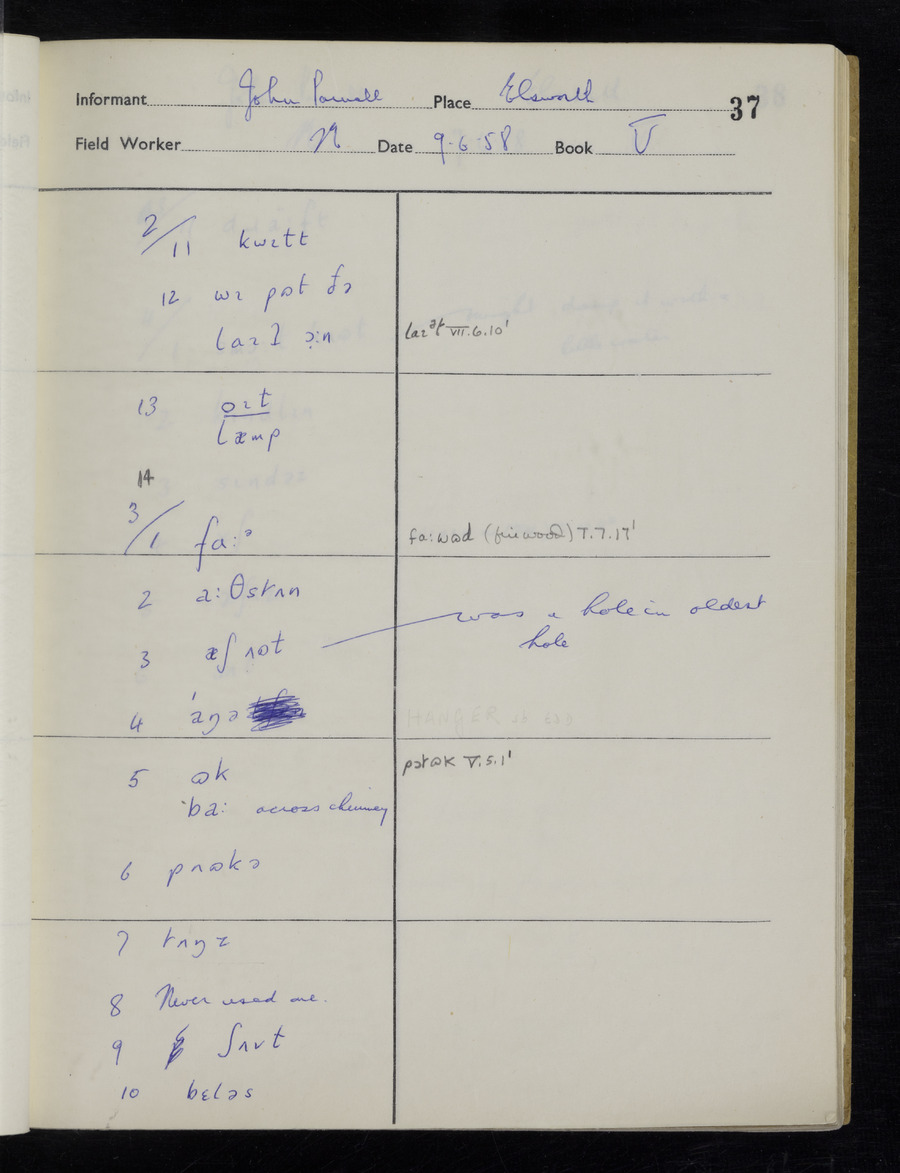 Informant John Powell Place Elsworth 37
Field Worker N Date 9.6.58 Book V
2/11 kwɪtt
12 wɪ pɒt ðə
laɪt ɔ:n laɪət VII.6.10'
13 ɒɪt
læmp
14
3/1 fa:ə fa:wəd (firewood) V.7.17'
2 a:θstnn
3 æʃ ɹɒt was a hole in oldest
hole
4 'aŋə HANGER
5 ɷk pɔtɷk V.5.1'
'ba: across chimney
6 pɹɷkə
7 tɹŋz
8 Never used one.
9 ʃʌvt
10 bɛləs